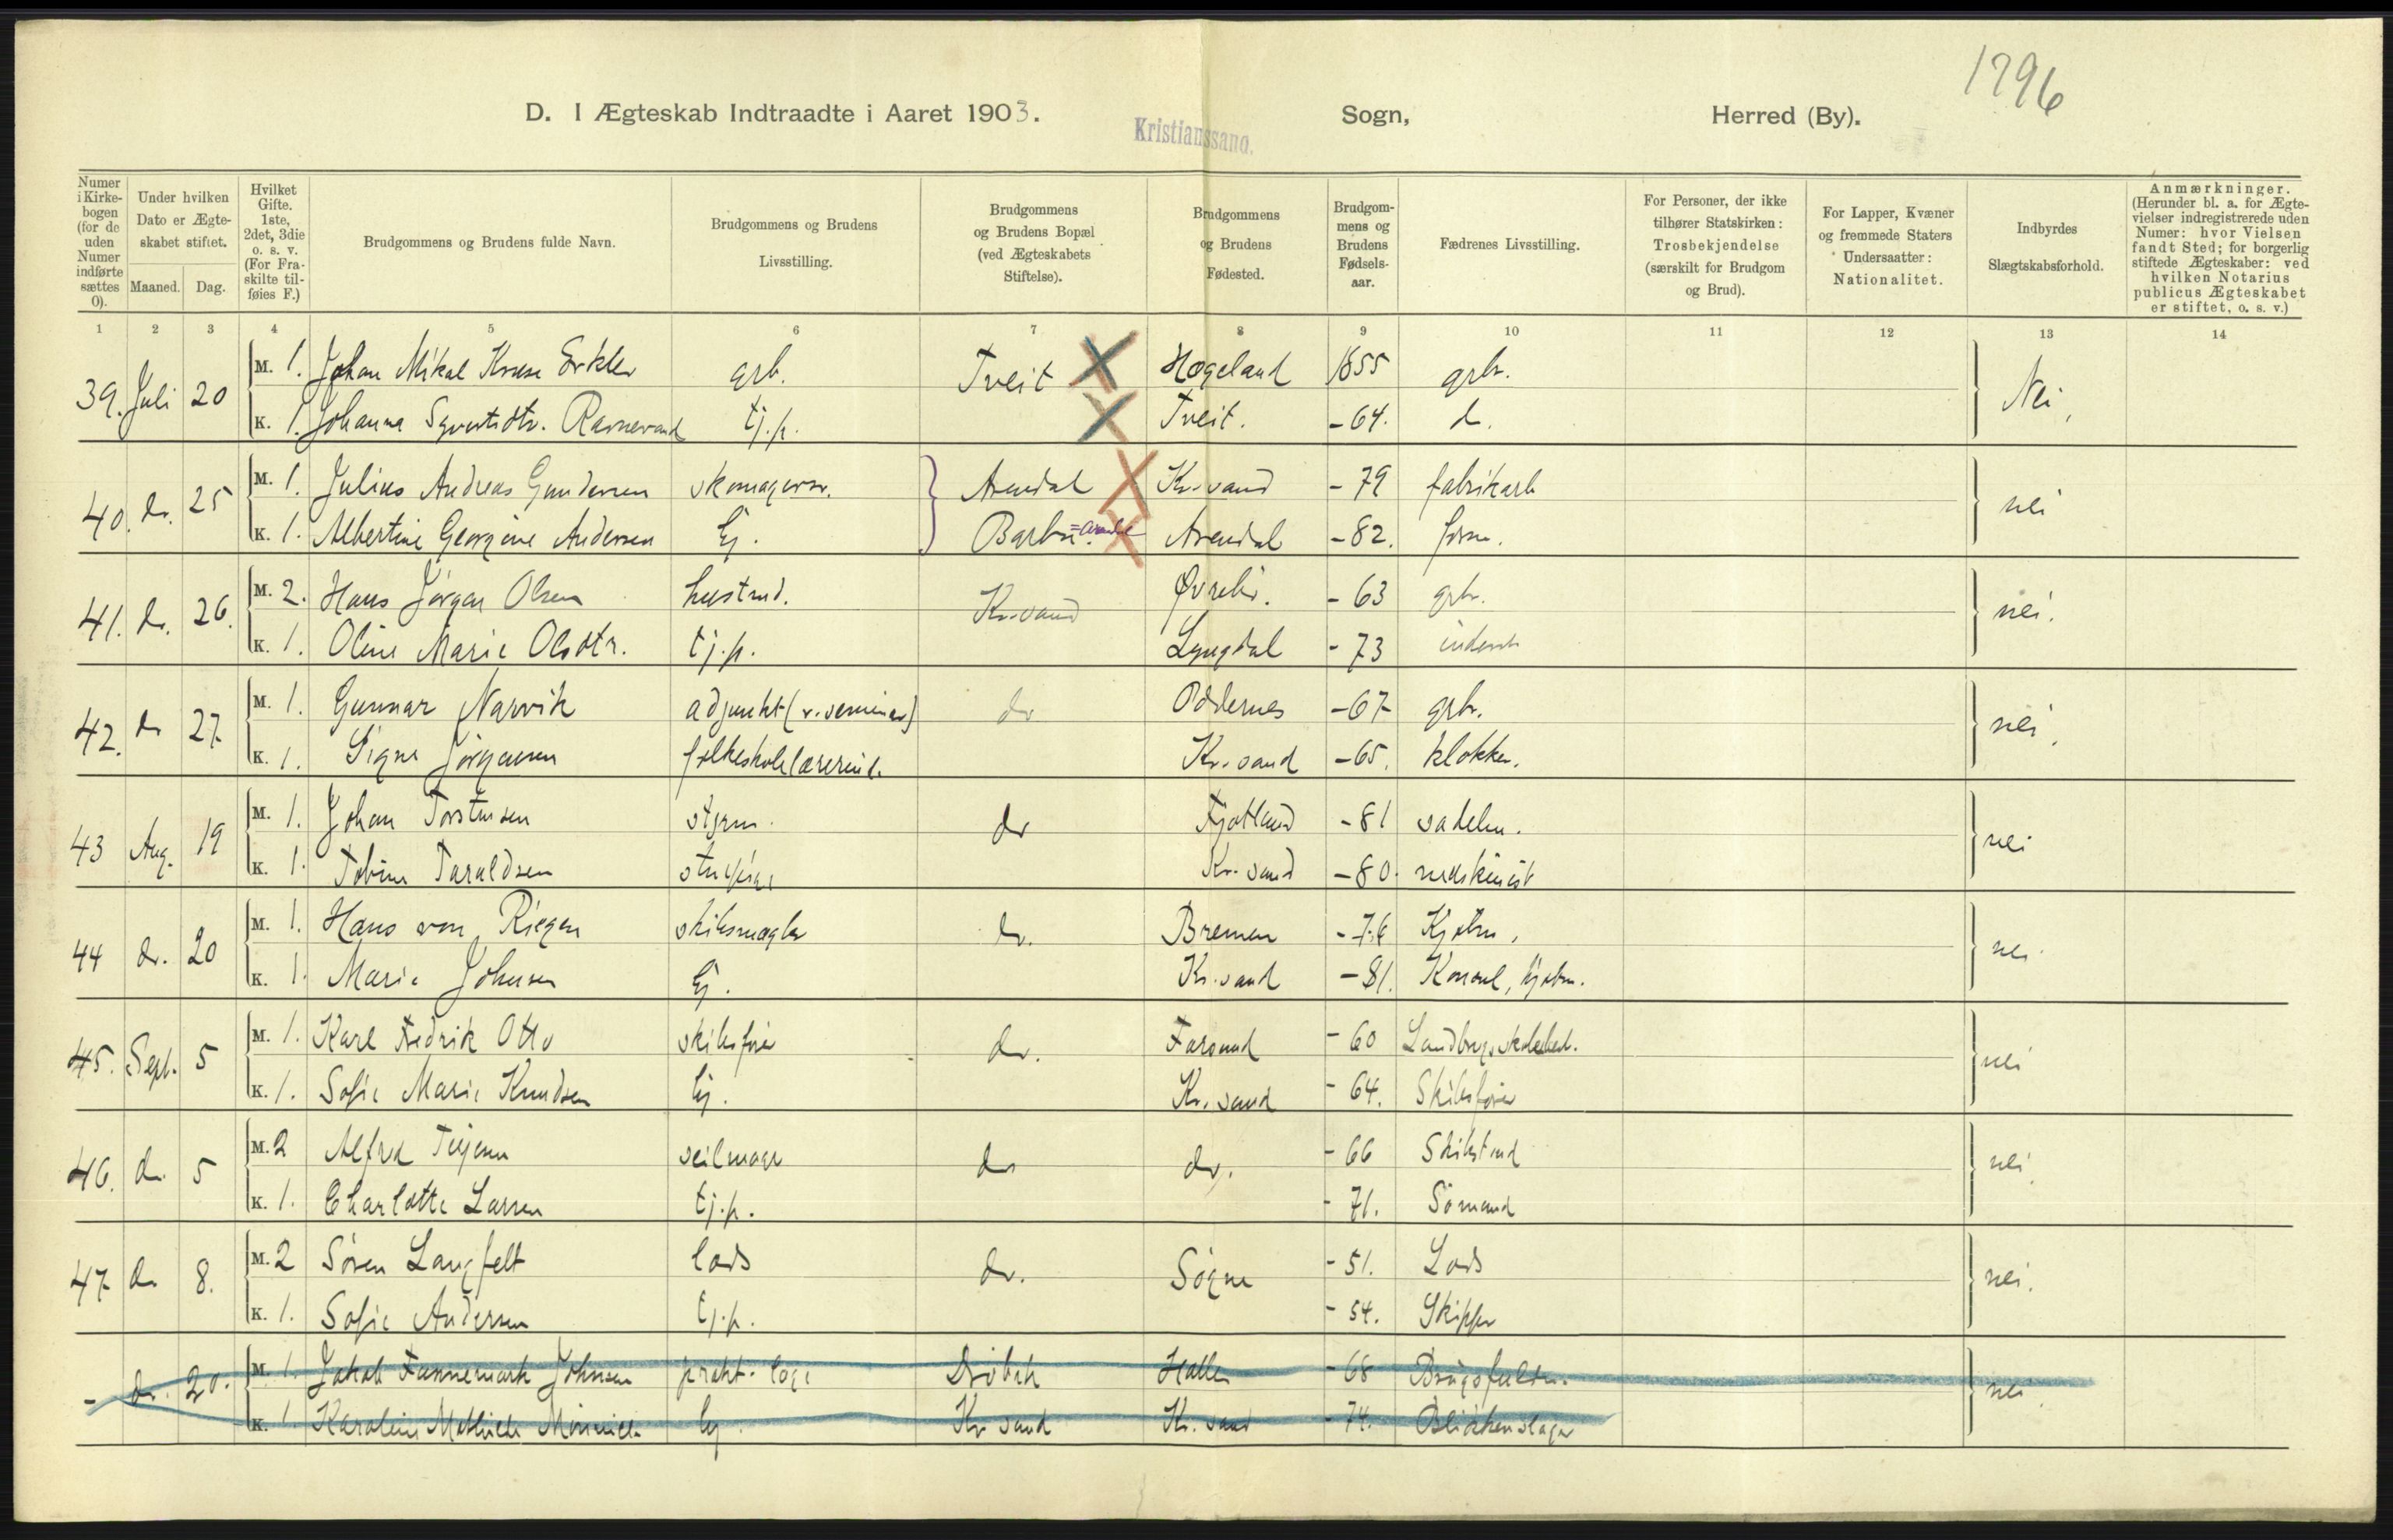 1796
D. I Ægteskab Indtraadte i Aaret 1903. Sogn, Herred (By).
Kristianssand.
Numer i Kirkebogen (for de uden Numer indførte sættes 0).
Under hvilken Dato er Ægteskabet stiftet.
Maaned. Dag.
Hvilket Gifte. 1ste, 2det, 3die o. s. v. (For Fraskilte tilføies F.)
Brudgommens og Brudens fulde Navn.
Brudgommens og Brudens Livsstilling.
Brudgommens og Brudens Bopæl (ved Ægteskabets Stiftelse).
Brudgommens og Brudens Fødested.
Brudgommens og Brudens Fødselsaar.
Fædrenes Livsstilling.
For Personer, der ikke tilhører Statskirken: Trosbekjendelse (særskilt for Brudgom og Brud).
For Lapper, Kvæner og fremmede Staters Undersaatter: Nationalitet.
Indbyrdes Slægtskabsforhold.
Anmærkninger. (Herunder bl. a. for Ægtevielser indregistrerede uden Numer: hvor Vielsen fandt Sted; for borgerlig stiftede Ægteskaber: ved hvilken Notarius publicus Ægteskabet er stiftet, o. s. v.)
1 2 3 4 5 6 7 8 9 10 11 12 13 14
39. Juli 20 M. 1. Johan Mikal Kruse Erklev grb. Tveit Hægeland 1855 grbr. Nei,
K. 1. Johanna Syvertsdtr. Ravnevand tj.p. Tveit. -64. d.
40. do. 25 M. 1. Julius Andreas Gundersen skomagersv. Arendal Kr.sand -79 fabrikarb nei
K. 1. Albertine Georgine Andersen Ej. Barbu =Arendal Arendal -82. form.
41. do. 26. M. 2. Hans Jörgen Olsen Kr.sand Øvrebö. -63 grbr. nei.
K. 1. Oline Marie Olsdtr. tj.p. Lyngdal -73 inderst
42. do 27. M. 1. Gunnar Narvik adjunkt (v. seminar) do Oddernes -67 grbr. nei.
K. 1. Signe Jörgensen folkeskolelærerind. Kr.sand -65. klokker.
43 Aug. 19 M. 1. Johan Torstensen styrm. do Fjotland -81 sadelm. nei
K. 1. Tobine Taraldsen stuepige Kr.sand -80. maskinist
44 do. 20 M. 1. Hans von Riegen skibsmægler do. Bremen -76 Kjøbm. nei
K. 1. Marie Johnsen Ej. Kr.sand -81. Konsul, kjøbm.
45. Sept. 5 M. 1. Karl Fredrik Otto skibsfører do. Farsund -60 nei
K. 1. Sofie Marie Knudsen Ej. Kr.sand -64. Skibsfører
46. do. 5 M. 2 Alfred Terjesen seilmager do do. -66 nei
K. 1. Charlotte Larsen tj.p. -71. Sömand
47 do 8. M. 2 Sören Langfelt lods do. Sögne -51. Lods nei.
K. 1. Sofie Andersen tj.p. -54. Skipper
- do. 20. M. 1. Jakob Fannemark Johnsen prakt. læge Dröbak Halden -68 nei
K. 1. Karoline Mathilde Ej. Kr.sand Kr.sand -74. Blikkenslager